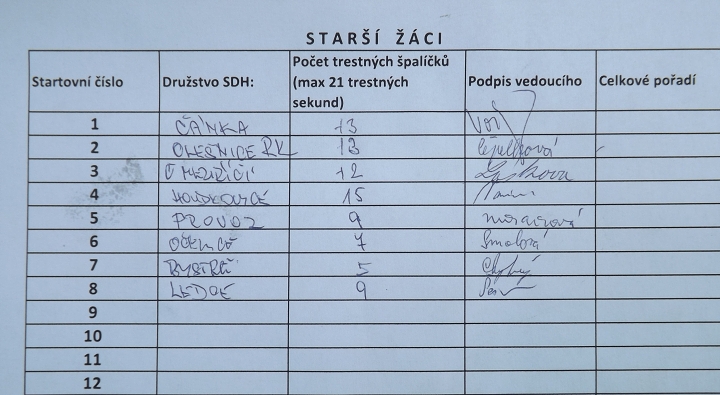 STARŠÍ ŽÁCI
Startovní číslo Družstvo SDH: Počet trestných špalíčků (max 21 trestných sekund) Podpis vedoucího Celkové pořadí
1 ČÁNKA 13
2 OLEŠNICE RK 13
3 Č MEZIŘÍČÍ 12
4 15
5 PROVOZ 9
6 7 Smolová
7 BYSTRÉ 5
8 LEDCE 9
9
10
11
12